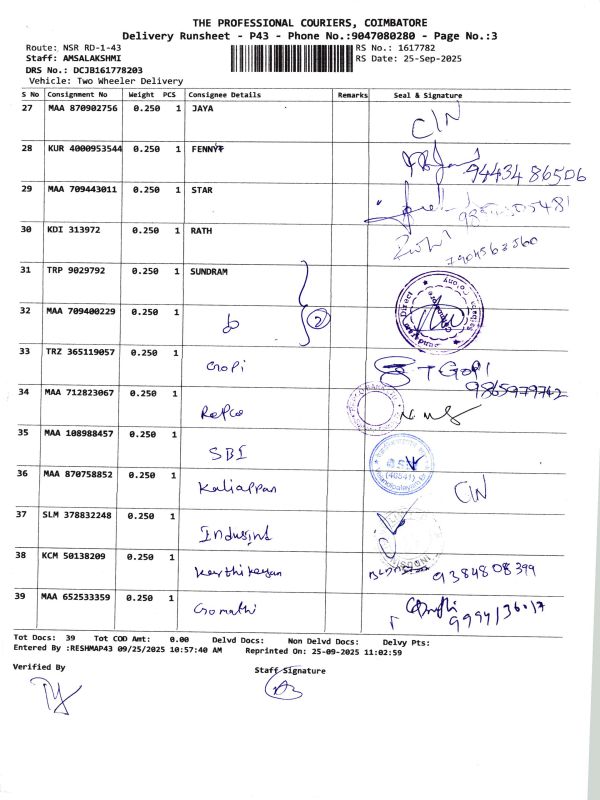 THE PROFESSIONAL COURIERS, COIMBATORE
Delivery Runsheet - P43 - Phone No.:9047080280 - Page No.:3
Route: NSR RD-1-43 RS No.: 1617782
Staff: AMSALAKSHMI RS Date: 25-Sep-2025
DRS No.: DCJB161778203
Vehicle: Two Wheeler Delivery
S No Consignment No Weight PCS Consignee Details Remarks Seal & Signature
27 MAA 870902756 0.250 1 JAYA C/N
28 KUR 4000953544 0.250 1 FENNY 94434 86506
29 MAA 709443011 0.250 1 STAR
30 KDI 313972 0.250 1 RATH 7904563560
31 TRP 9029792 0.250 1 SUNDRAM
32 MAA 709400229 0.250 1 2
33 TRZ 365119057 0.250 1 Gopi T Gopi
9865979742
34 MAA 712823067 0.250 1 Repco
35 MAA 108988457 0.250 1 SBI
36 MAA 870758852 0.250 1 Kaliappan C/N
37 SLM 378832248 1 0.250 1 Indusind
38 KCM 50138209 0.250 1 Karthikeyan 9384808399
39 MAA 652533359 0.250 1 Gomathi
Tot Docs: 39 Tot COD Amt: 0.00 Delvd Docs: Non Delvd Docs: Delvy Pts:
Entered By :RESHMAP43 09/25/2025 10:57:40 AM Reprinted On: 25-09-2025 11:02:59
Verified By Staff Signature